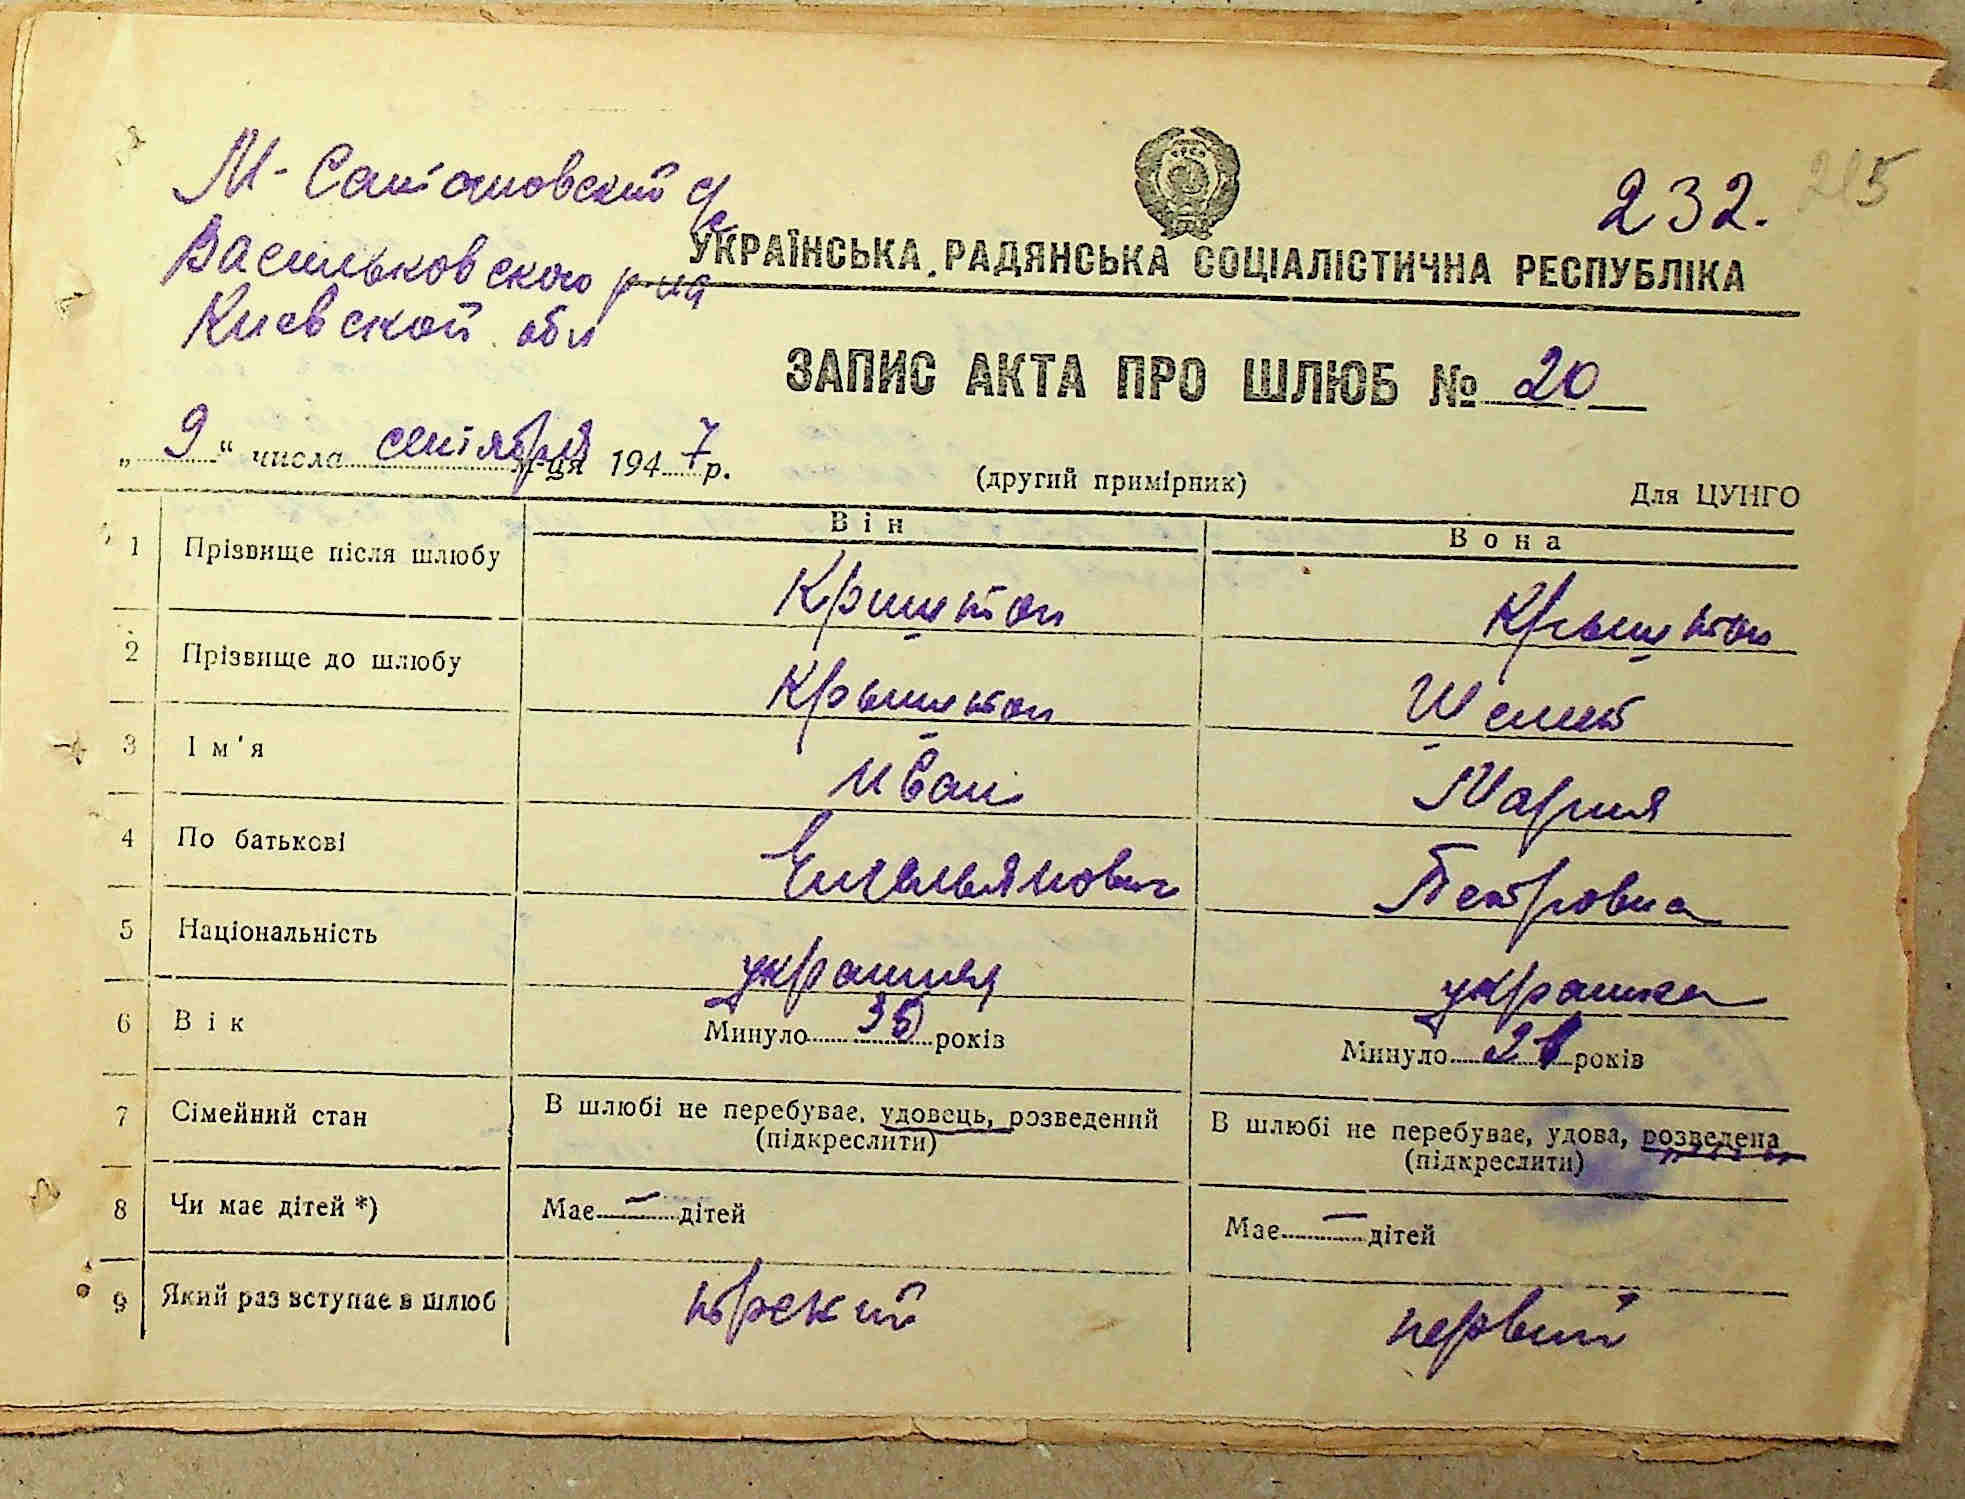 М-Салтановский с/с
Васильковского р-на
Киевской обл
232.
215
УКРАЇНСЬКА РАДЯНСЬКА СОЦІАЛІСТИЧНА РЕСПУБЛІКА
ЗАПИС АКТА ПРО ШЛЮБ № 20
„ 9 “ числа сентября м-ця 1947 р.
(другий примірник)
Для ЦУНГО
Він Вона
1 Прізвище після шлюбу Криштоп Крыштоп
2 Прізвище до шлюбу Крыштоп
3 Ім'я Иван Мария
4 По батькові Емельянович Петровна
5 Національність украинец украинка
6 Вік Минуло 35 років Минуло 21 років
7 Сімейний стан В шлюбі не перебуває, удовець, розведений В шлюбі не перебуває, удова, розведена
(підкреслити) (підкреслити)
8 Чи має дітей *) Має — дітей Має — дітей
9 Який раз вступає в шлюб первый